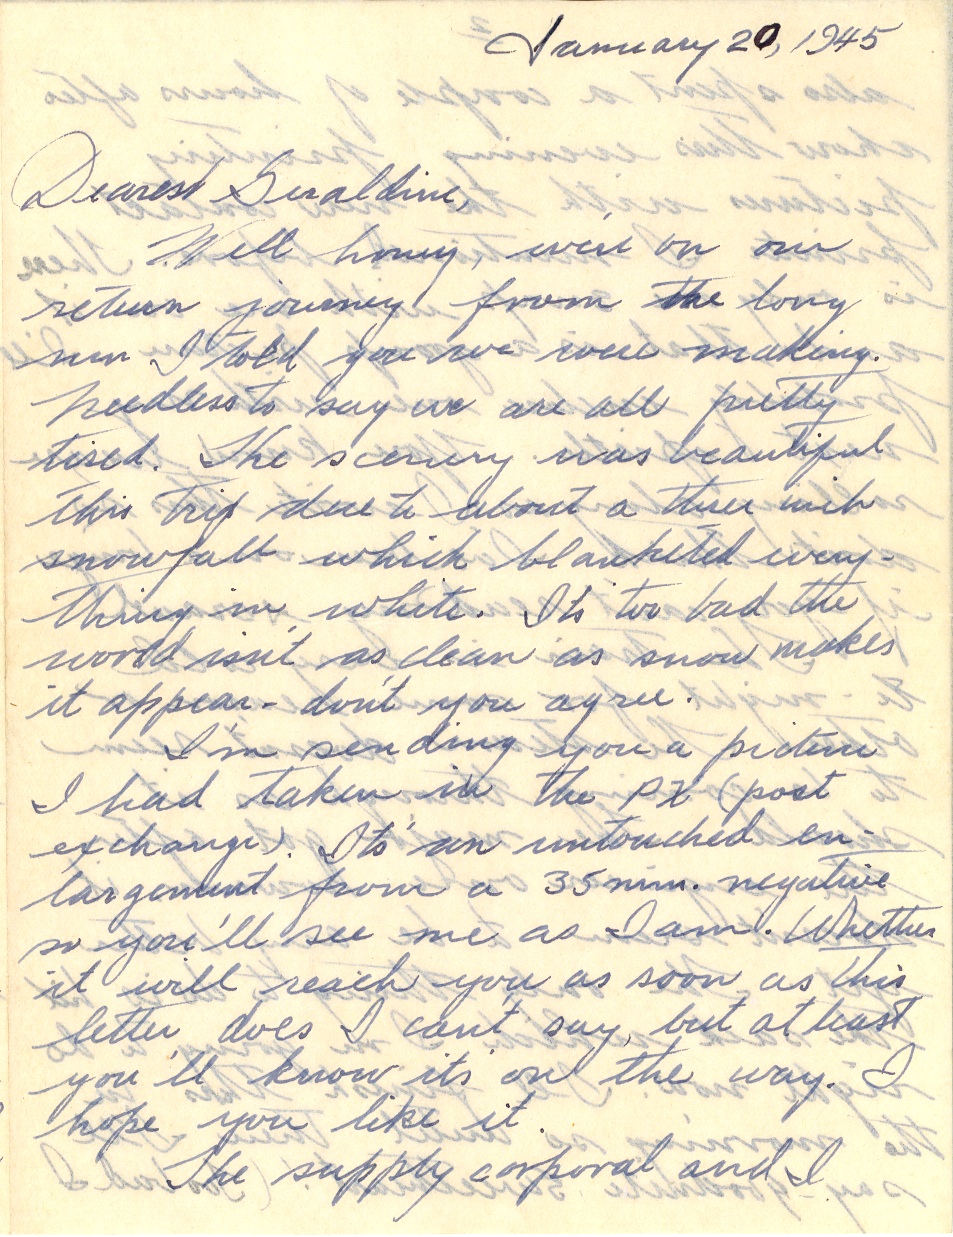 January 20, 1945
Dearest Geraldine,
Well honey, we're on our
return journey from the long
run I told you we were making.
Needless to say we are all pretty
tired. The scenery was beautiful
this trip due to about a three inch
snowfall which blanketed every-
thing in white. It's too bad the
world isn't as clean as snow makes
it appear - don't you agree.
I'm sending you a picture
I had taken in the PX (post
exchange). It's an untouched en-
largement from a 35 mm. negative
so you'll see me as I am. Whether
it will reach you as soon as this
letter does I can't say, but at least
you'll know it's on the way. I
hope you like it.
The supply corporal and I